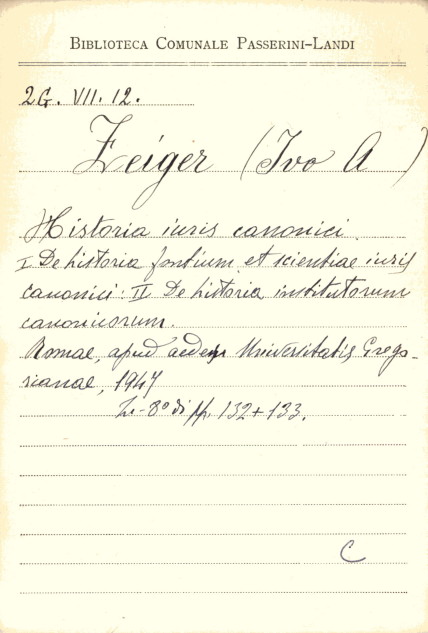 BIBLIOTECA COMUNALE PASSERINI-LANDI
2G. VII. 12.
Zeiger (Ivo A)
Historia iuris canonici.
I De historia fontium et scientiae iuris
canonici: II De historia institutorum
canonicorum.
Romae, apud aedes Universitatis Grego-
rianae, 1947
In-8° di pp. 132+133.
C